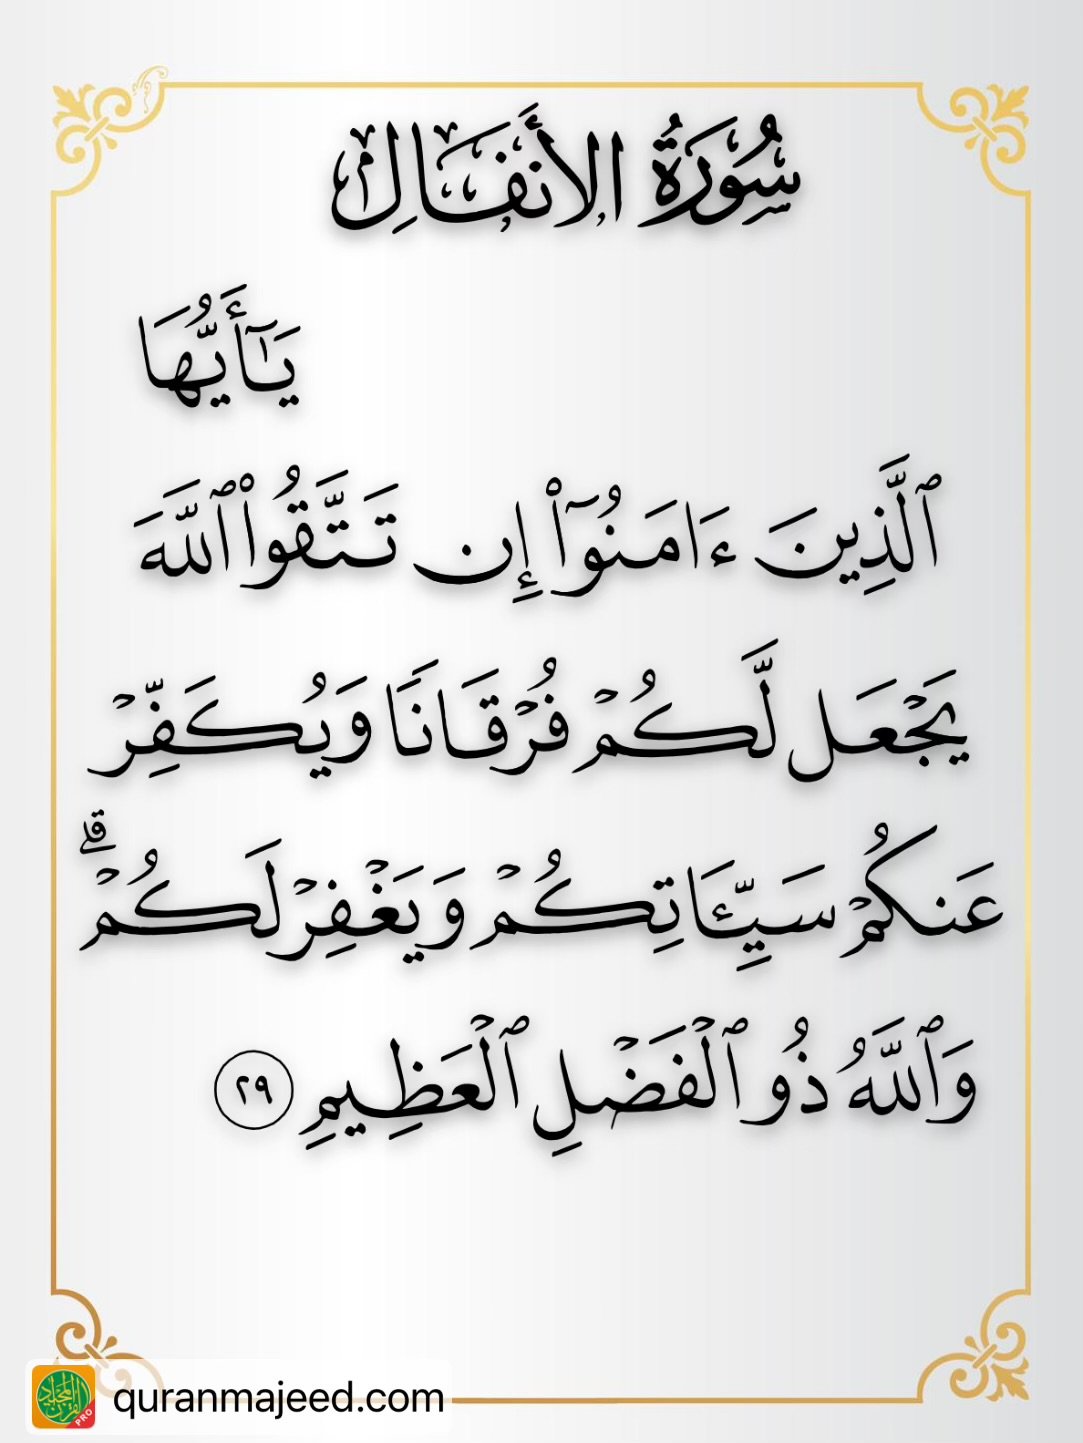 سُورَةُ الأَنفَالِ
يَـٰٓأَيُّهَا
ٱلَّذِينَ ءَامَنُوٓا۟ إِن تَتَّقُوا۟ ٱللَّهَ
يَجْعَل لَّكُمْ فُرْقَانًا وَيُكَفِّرْ
عَنكُمْ سَيِّـَٔاتِكُمْ وَيَغْفِرْ لَكُمْ ۗ
وَٱللَّهُ ذُو ٱلْفَضْلِ ٱلْعَظِيمِ ٢٩
quranmajeed.com